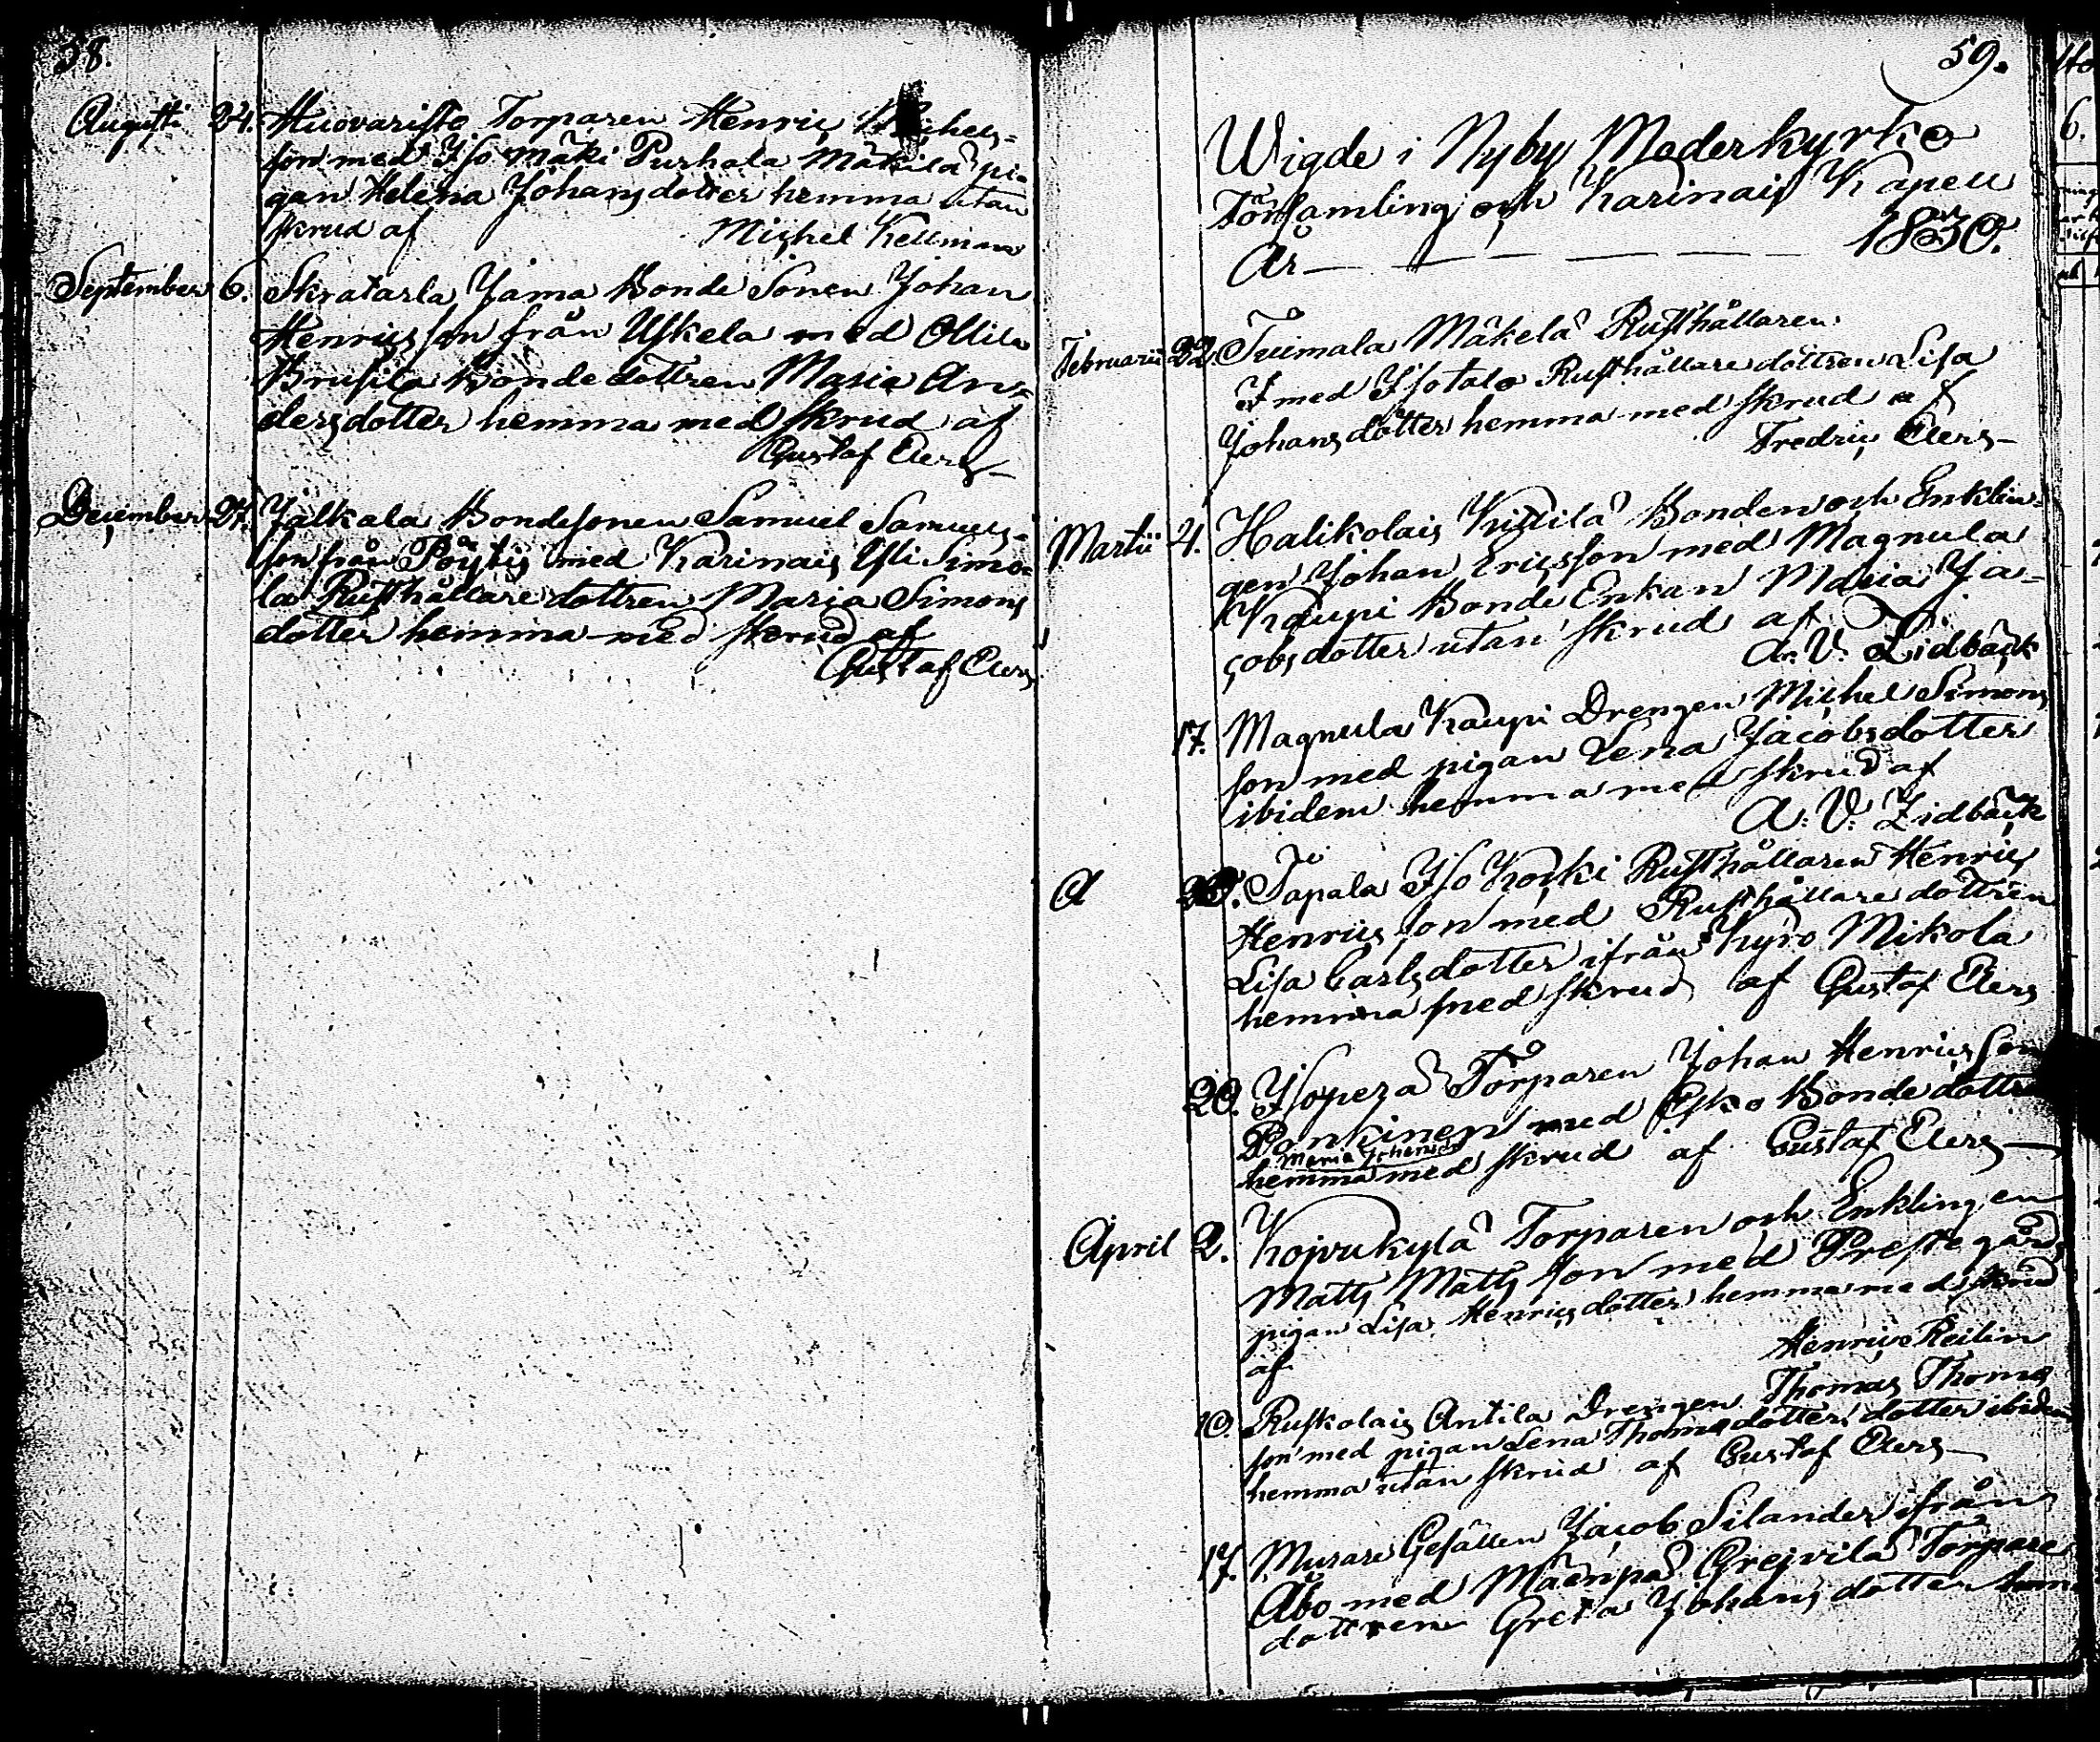 38.
Augusti 24. Huovaristo Torparen Henric Michels-
son med Iso Mäki Purhala Mäkilä pi-
gan Helena Johansdotter hemma utan
skrud af Michel Kellman
September 6. Skratarla Jama Bonde Sonen Johan
Henricsson från Uskela med Ollila
Brusila Bonde dottren Maria An-
dersdotter hemma med skrud af
Gustaf Elers
December 27. Jalkala Bondesonen Samuel Samuels-
son från Pöytis med Karinais Ylli Simo-
la Rusthållare dottren Maria Simons
dotter hemma med skrud af
Gustaf Elers
59.
Wigde i Nyby Moderkyrko
Församling och Karinais Kapell
År 1830.
Februarii 22. Tuimala Mäkelä Rusthållaren
I med Isotalo Rusthållare dottren Lisa
Johansdotter hemma med skrud af
Fredric Elers
Martii 4. Halikolais Kittilä Bonden och Enklin-
gen Johan Ericsson med Magnula
Kaupi Bonde Enkan Maria Ja-
cobsdotter utan skrud af
A. V. Lidbäck
17. Magnula Kaupi Drengen Michel Simons
son med pigan Lena Jacobsdotter
ibidem hemma med skrud af
A. V. Lidbäck
A 28. Tapala Iso Koski Rusthållaren Henric
Henricsson med Rusthållare dottren
Lisa Carlsdotter ifrån Kyro Mikola
hemma med skrud af Gustaf Elers
20. Isoperä Torparen Johan Henricsson
Penkinen med Esko Bonde dottren
Maria Johans
hemma med skrud af Gustaf Elers
April 2. Kojvukylä Torparen och Enklingen
Matts Matts son med Prestegårds
pigan Lisa Henricsdotter hemma med skrud
af Henric Reilin
10. Ruskolais Antila Drengen Thomas Thomas
son med pigan Lena Thomasdotter dotter ibidem
hemma utan skrud af Gustaf Elers
17. Murare Gesällen Jacob Silander ifrån
Åbo med Mäenpä Grejvilä Torpare
dottren Greta Johans dotter hem